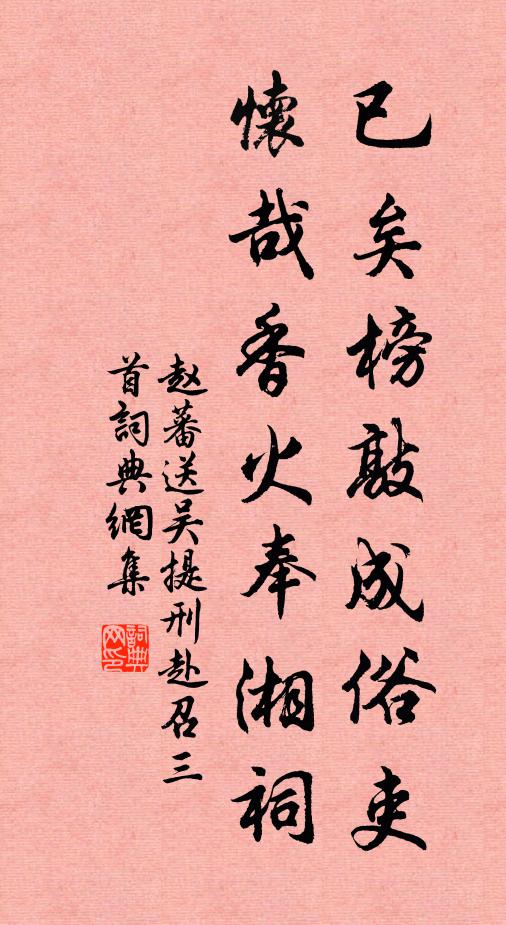 已矣榜敲成俗吏
懷哉香火奉湘祠
赵蕃送吴提刑赴召三
首詞典網集
詞典网印